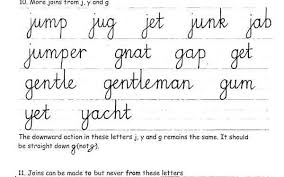 10. More joins from j, y and g
jump jug jet junk jab
jumper gnat gap get
gentle gentleman gum
yet yacht
The downward action in these letters j, y and g remains the same. It should
be straight down g (not g).
11. Joins can be made to but never from these letters